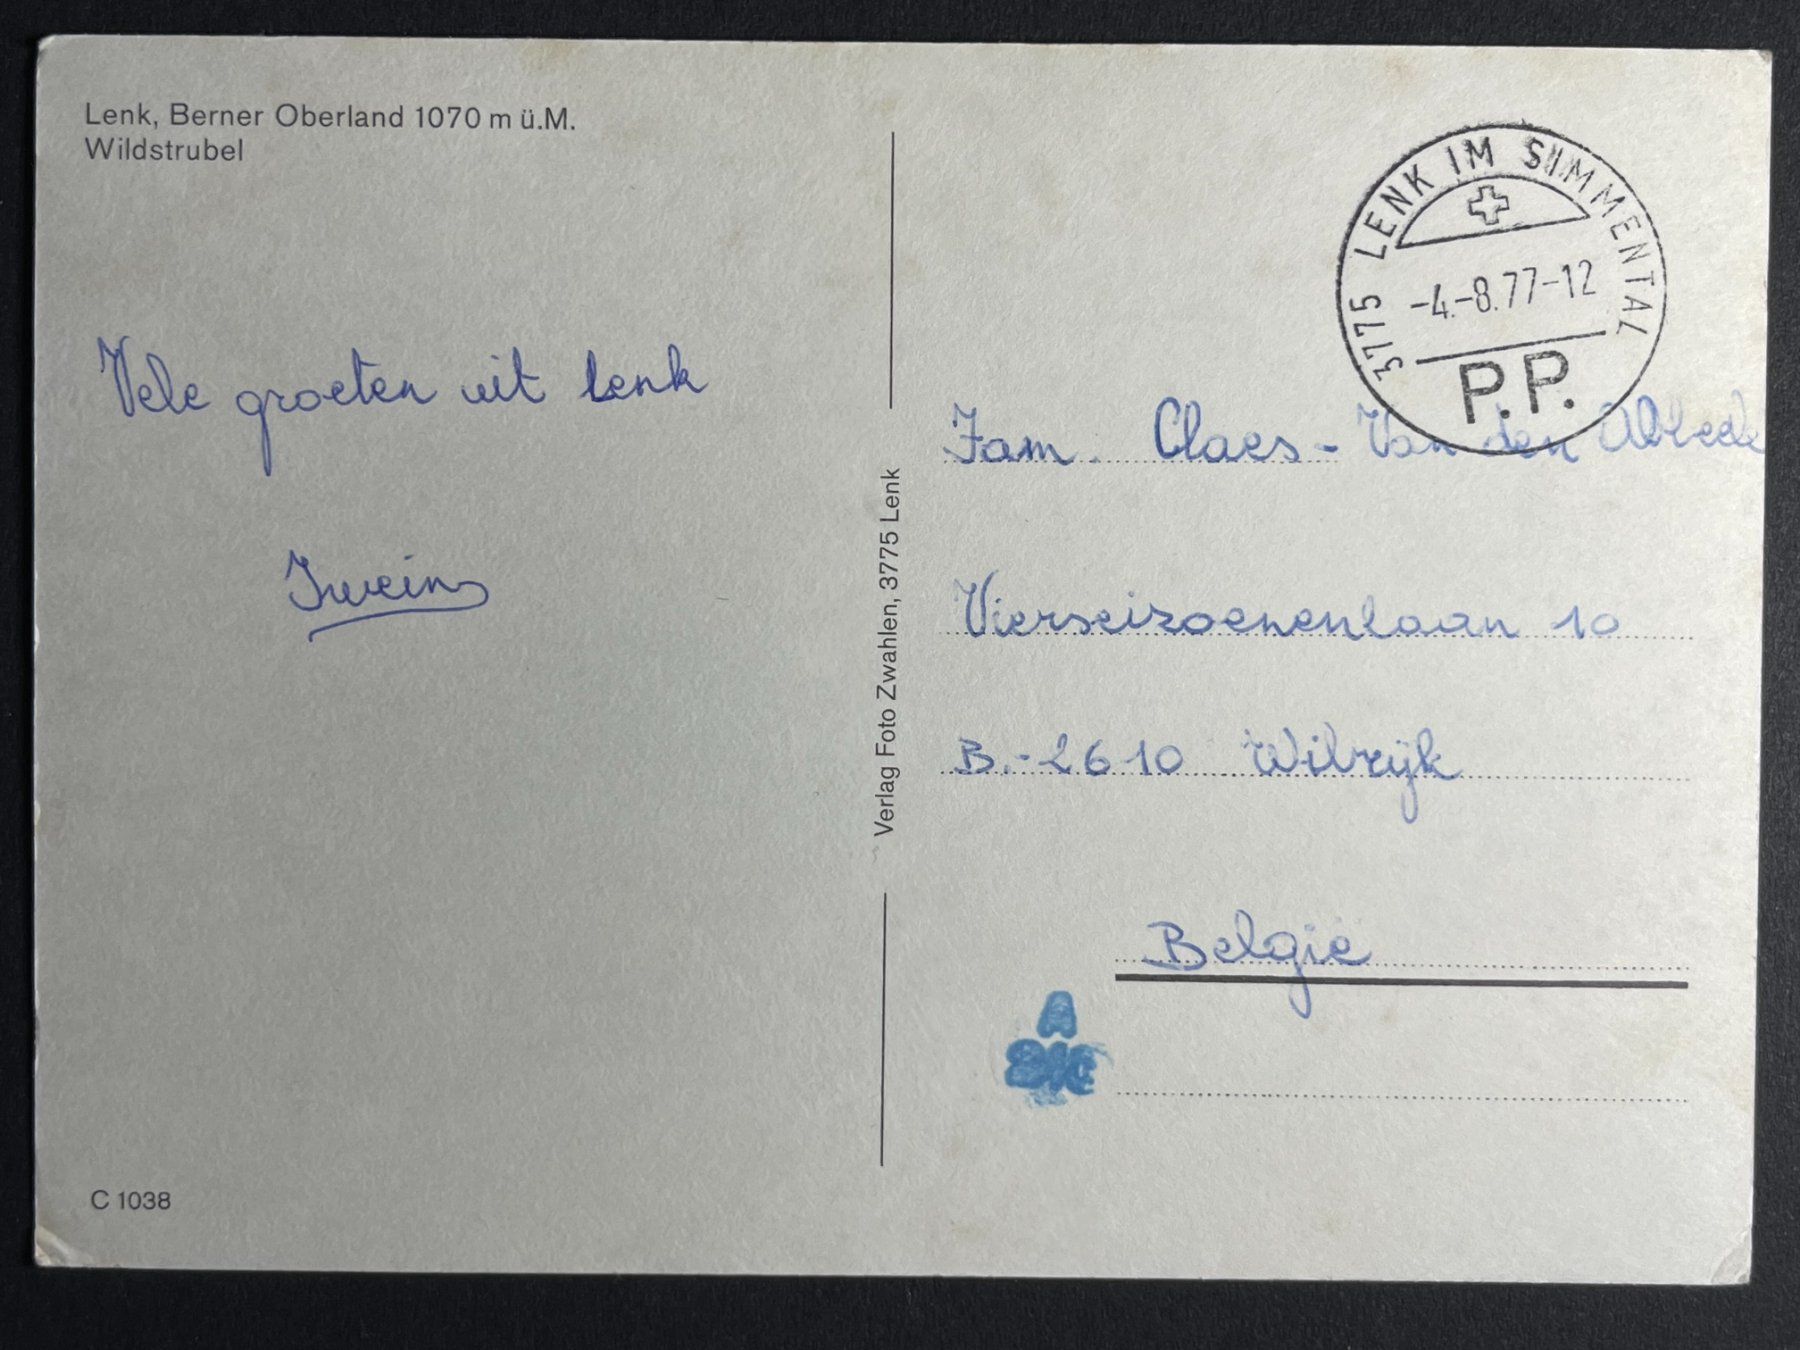 Lenk, Berner Oberland 1070 m ü.M.
Wildstrubel
Vele groeten uit Lenk
Iwein
C 1038
Verlag Foto Zwahlen, 3775 Lenk
3775 LENK IM SIMMENTAL
-4.-8.77-12
P.P.
Fam. Claes - Van den
Vierseizoenenlaan 10
B.-2610 Wilrijk
Belgie
A